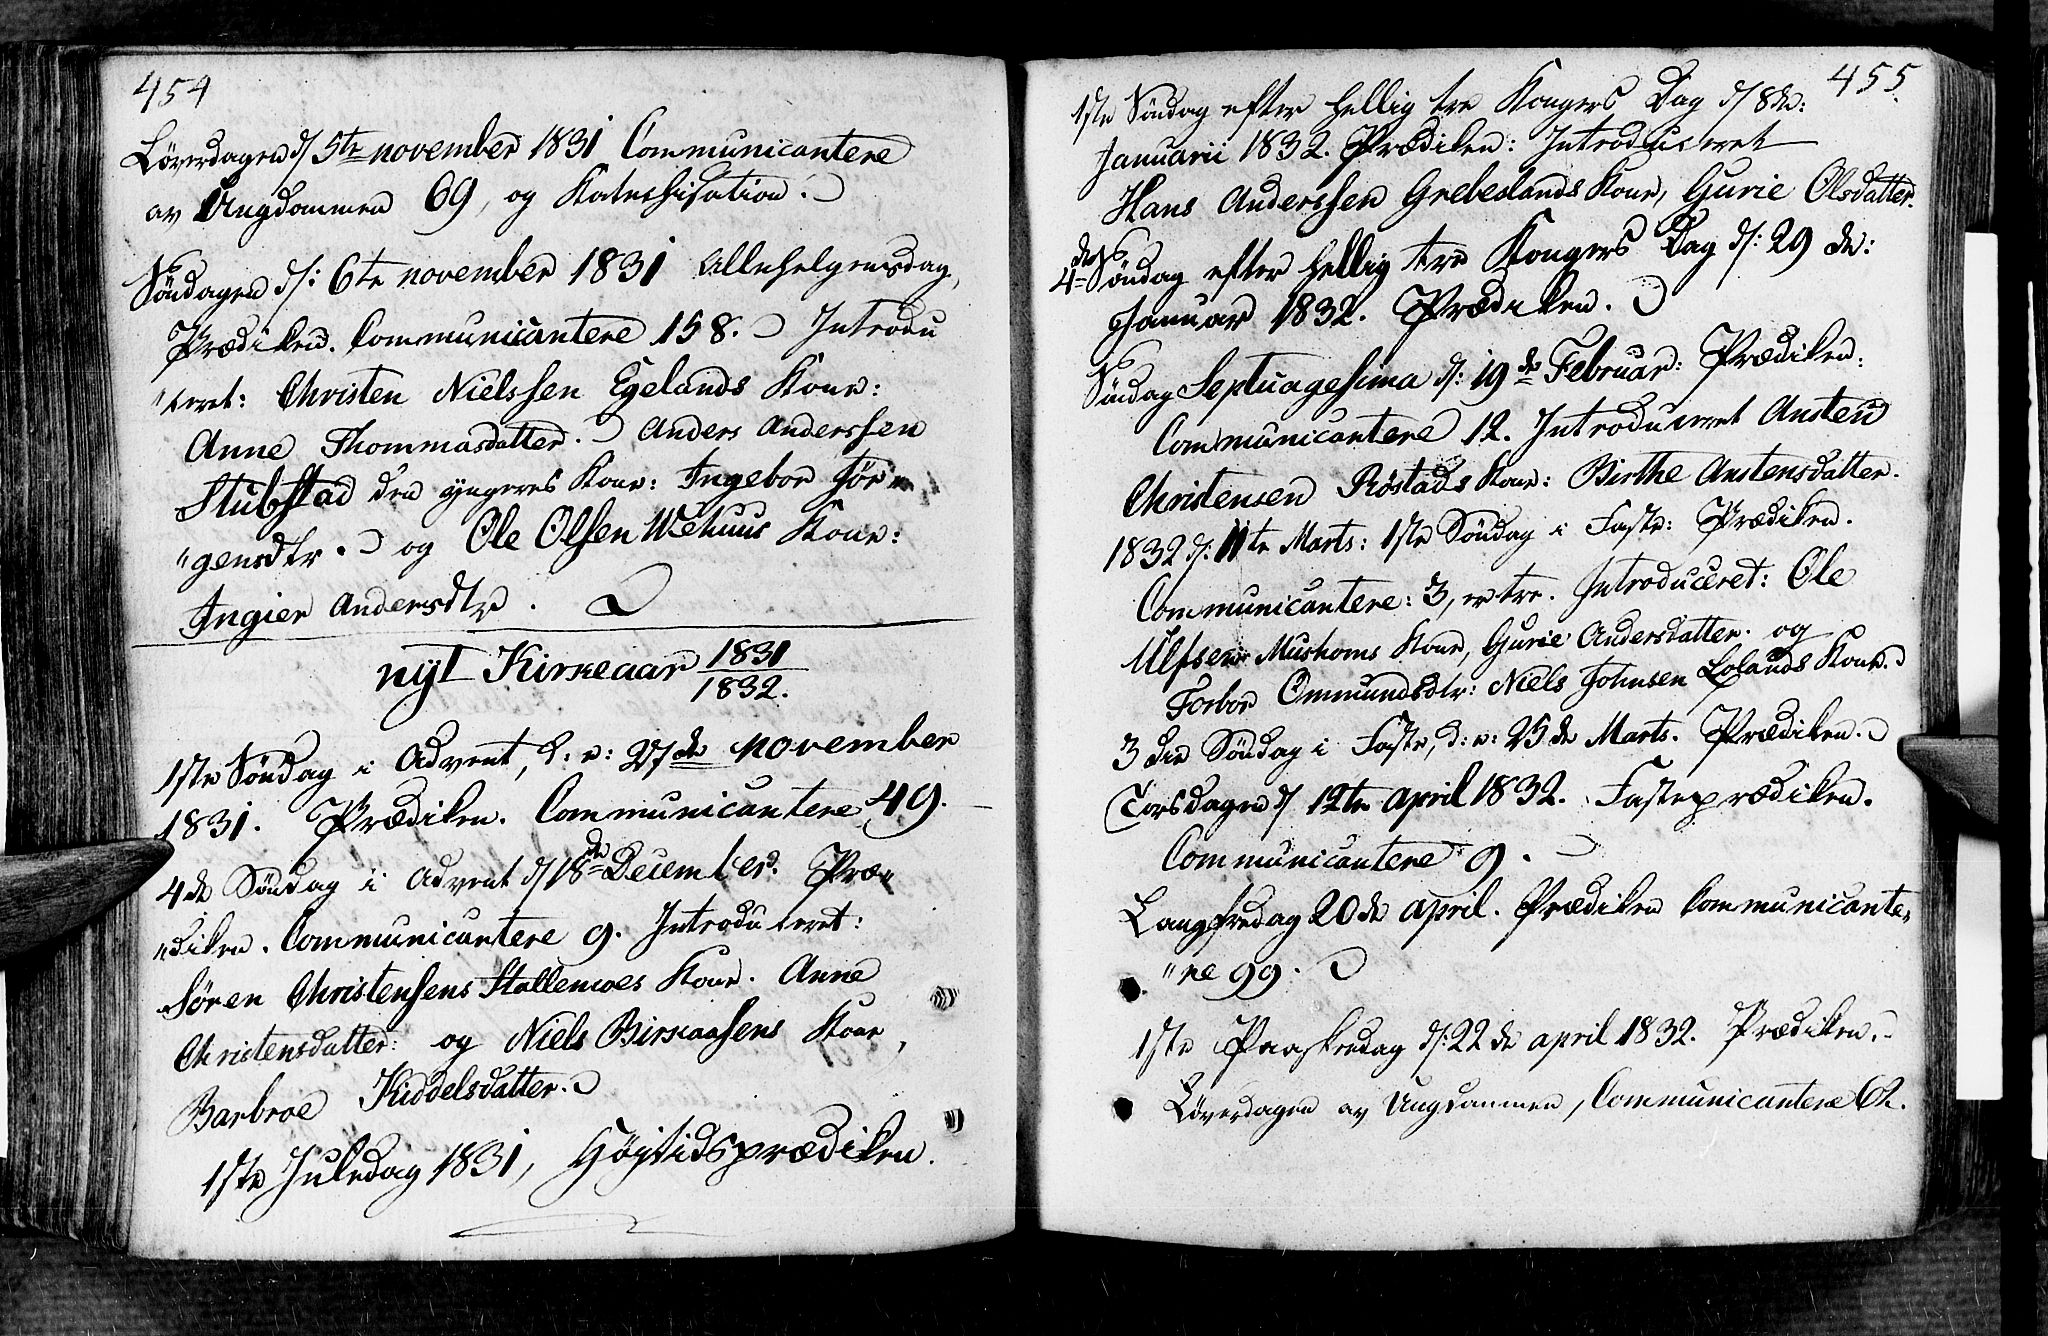 454
Löverdagen d/ 5te november 1831 Communicantere
av Ungdommen 69, og Katechisation.
Söndagen d/: 6te november 1831 Allehelgensdag,
Prædiken. Communicantere 158. Introdu
"ceret: Christen Nielssen Egelands Kone:
Anne Thommasdatter. Anders Anderssen
Stubstad den yngeres Kone: Ingebor Jör
"gensdtr. og Ole Olsen Wehuus Kone:
Ingier Andersdtr.
nyt Kirkeaar 1831/1832.
1ste Söndag i Advent, d. e: 27de november
1831. Prædiken. Communicantere 49.
4de Söndag i Advent d/ 18de December. Præ"
"diken. Communicantere 9. Introduceret:
Sören Christensens Stallemoes Kone. Anne
Christensdatter: og Niels Birkaasens Kone,
Barbroe Kiddelsdatter.
1ste Juledag 1831, Höjtidsprædiken.
455.
1ste Söndag efter hellig tre Kongers Dag d/ 8de:
Januarii 1832. Prædiken: Introduceret
Hans Anderssen Grebeslands Kone, Gurie Olsdatter.
4de Söndag efter hellig tre Kongers Dag d/: 29de:
Januar 1832. Prædiken.
Söndag Septuagesima d/: 19de Februar: Prædiken:
Communicantere 12. Introduceret Austen
Christensen Röstads Kone: Birthe Austensdatter.
1832 d/: 11te Marts: 1ste Söndag i Faste: Prædiken.
Communicantere: 3, er tre. Introduceret: Ole
Ulfsen Mushoms Kone, Gurie Andersdatter. og
Torbor Ommundsdtr: Niels Johnsen Lolands Kone.
3die Söndag i Faste, d: e: 25de Marts. Prædiken.
Torsdagen d/ 12te april 1832. Fasteprædiken.
Communicantere 9.
Langfredag 20de april. Prædiken Communicante"
"re 99.
1ste Paaskedag d/: 22de april 1832. Prædiken.
Löverdagen av Ungdommen, Communicantere